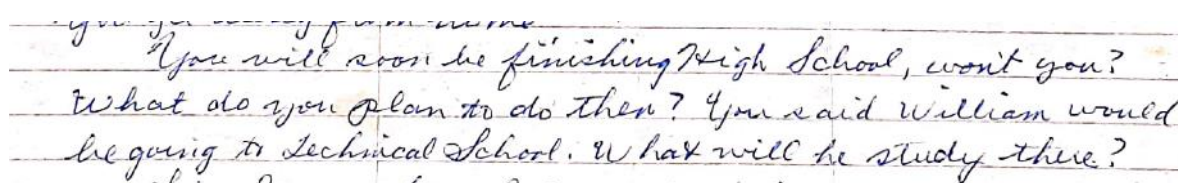 You will soon be finishing High School, won't you?
What do you plan to do then? You said William would
be going to Technical School. What will he study there?